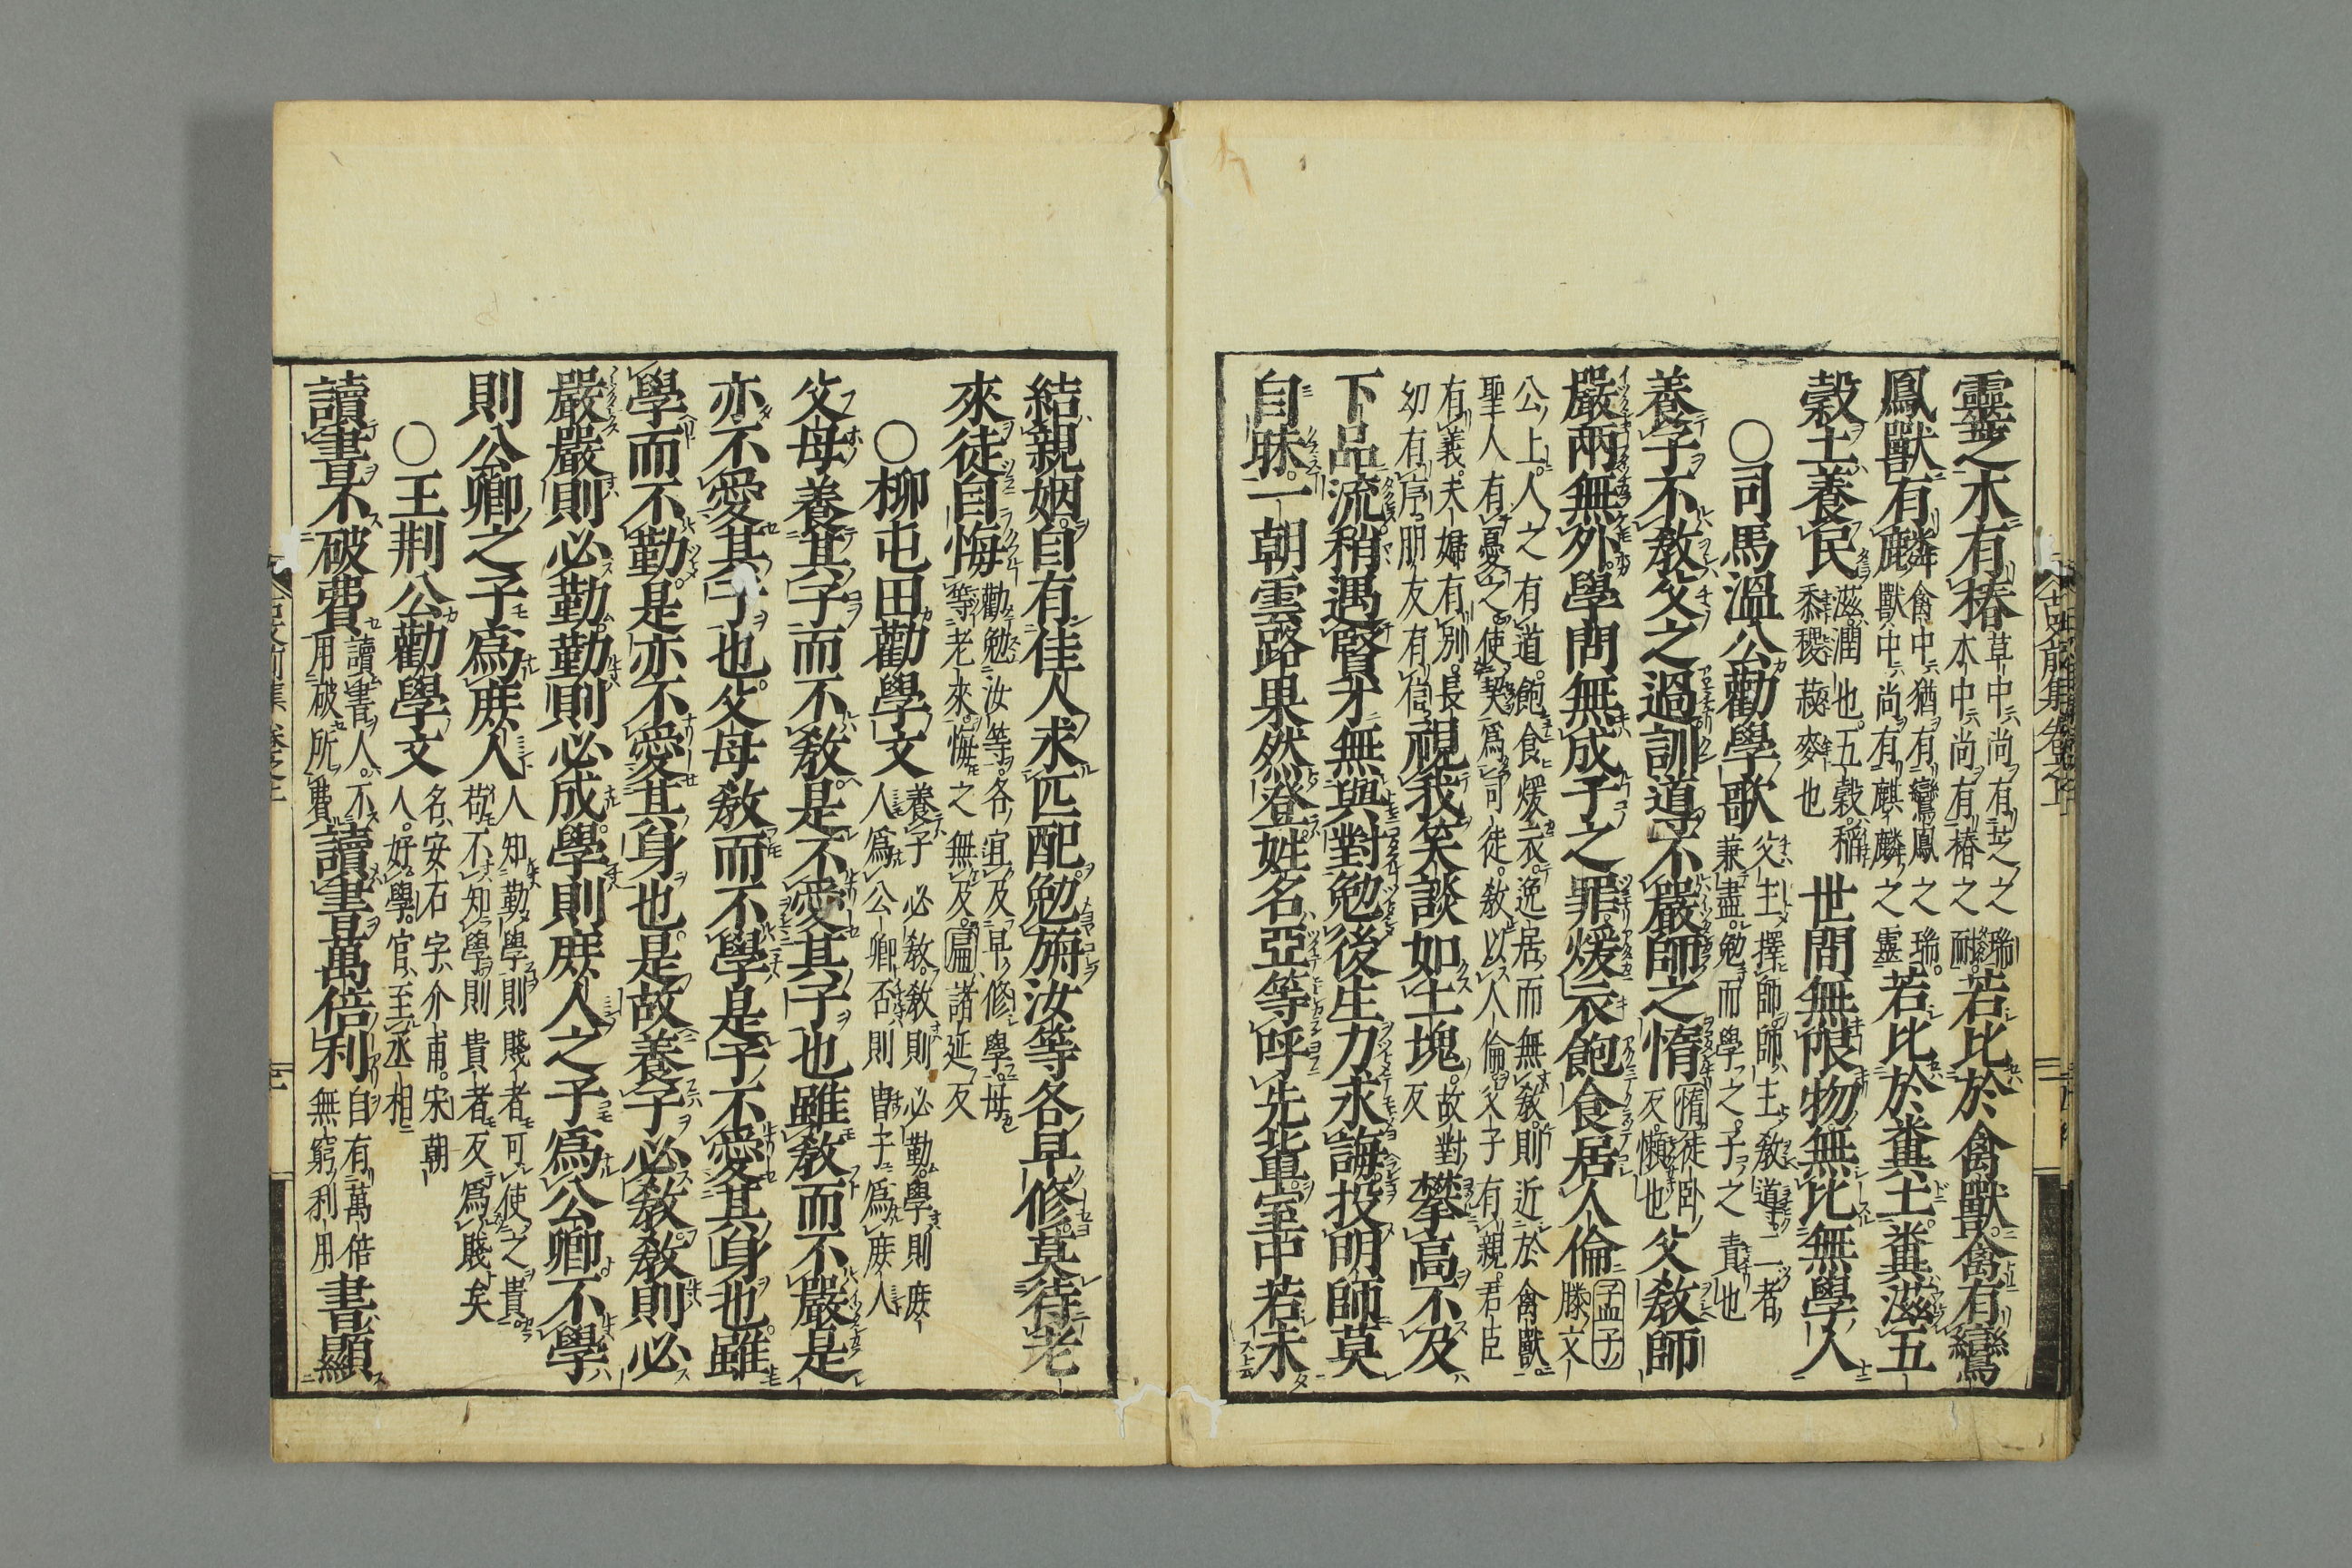 靈芝木有椿草中尚有芝之瑞木中尚有椿之耐若比於禽獸禽有鸞
鳳獸有麟禽中猶有鸞鳳之瑞獸中尚有麒麟之靈若比於糞土糞滋五
穀土養民滋潤也五穀稻黍稷菽麥也世間無限物無比無學人
○司馬溫公勸學歌父主擇師師主教道二者兼盡勉而學之子之責也
養子不教父之過訓導不嚴師之惰惰徒卧反懶也父教師
嚴兩無外學問無成子之罪煖衣飽食居人倫孟子滕文
公上人之有道飽食煖衣逸居而無教則近於禽獸
聖人有憂之使契爲司徒教以人倫父子有親君臣
有義夫婦有別長幼有序朋友有信視我笑談如土塊故對反攀高不及
下品流稍遇賢才無與對勉後生力求誨投明師莫
自昧一朝雲路果然登姓名亞等呼先輩室中若未
結親姻自有佳人求匹配勉旃汝等各早修莫待老
來徒自悔勸勉汝等各宜及早修學毋等老來悔之無及扁諸延反
○柳屯田勸學文養子必教教則必勤學則庶人爲公卿否則曹子爲庶人
父母養其子而不教是不愛其子也雖教而不嚴是
亦不愛其子也父母教而不學是子不愛其身也雖
學而不勤是亦不愛其身也是故養子必教教則必
嚴嚴則必勤勤則必成學則庶人之子爲公卿不學
則公卿之子爲庶人人知勤學則賤者可使之貴苟不知學則貴者反爲賤矣
○王荆公勸學文名安石字介甫宋朝人好學官至丞相
讀書不破費讀書人不用破所費讀書萬倍利自有萬倍無窮利用書顯
古文前集卷之上